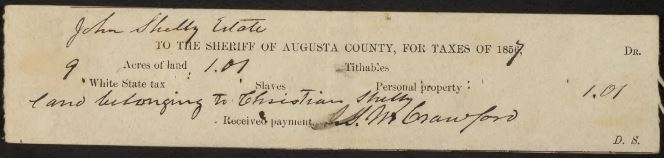 John Shelly Estate
TO THE SHERIFF OF AUGUSTA COUNTY, FOR TAXES OF 1857. DR.
9 Acres of land : 1.01 Tithables
White State tax Slaves Personal property : 1.01
land belonging to Christian Shelly
Received payment, M Crawford
D. S.